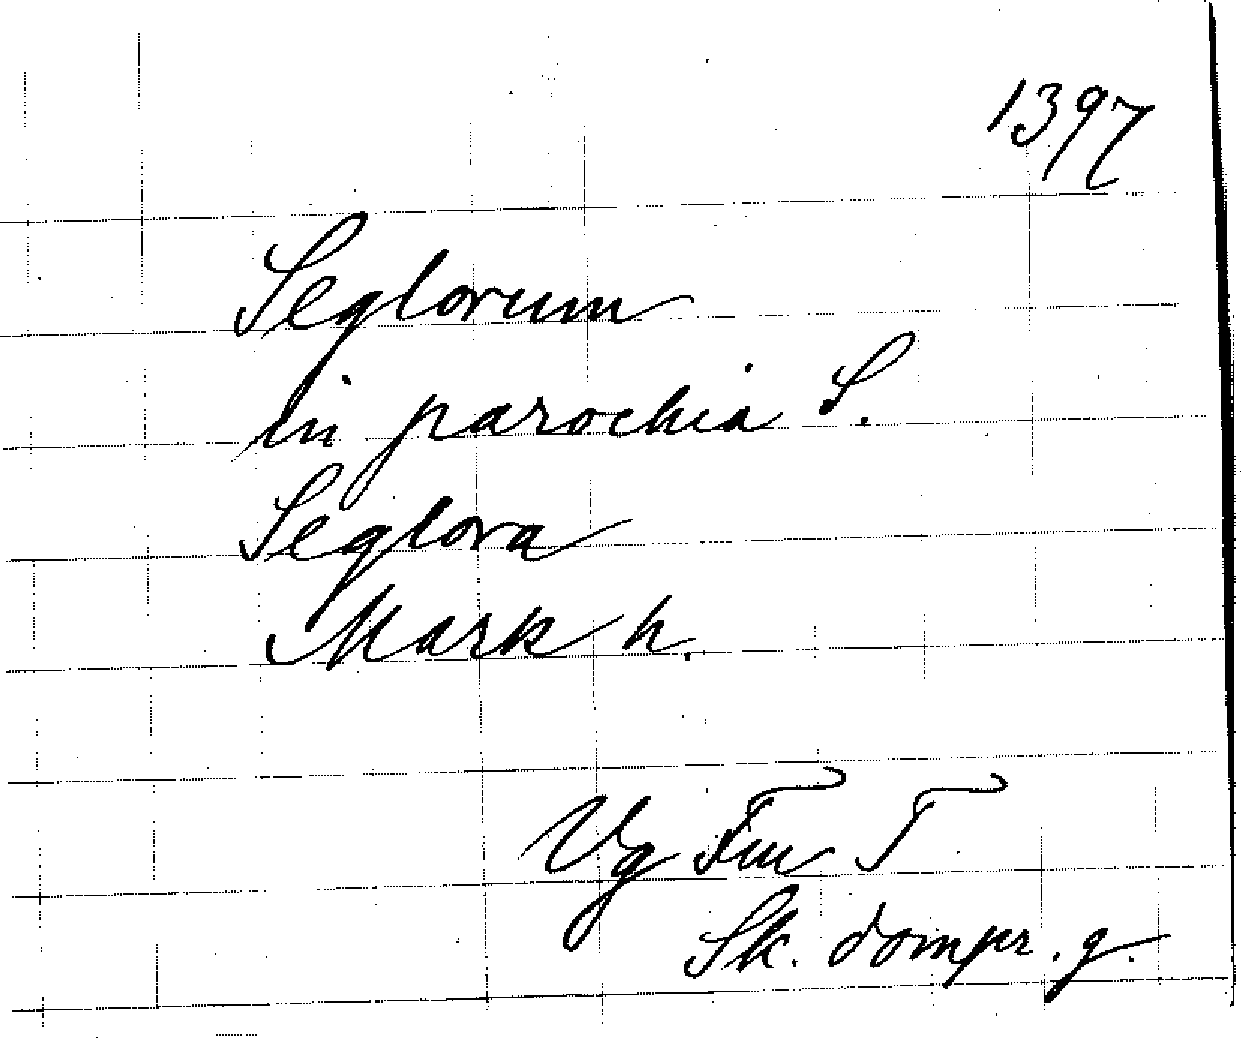 1397
Seglorum
in parochia S.
Seglora
Mark h.
Vg Fm T
Sk. dompr. g.